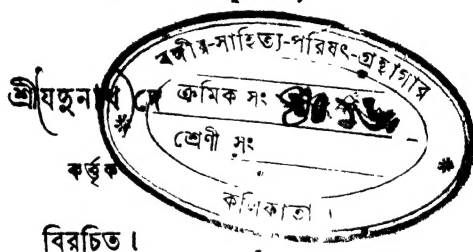 বঙ্গীয়-সাহিত্য-পরিষৎ-গ্রন্থাগার
শ্রীযদুনাথ দে
ক্রমিক সং
শ্রেণী সং
কর্ত্তৃক
কলিকাতা।
বিরচিত।